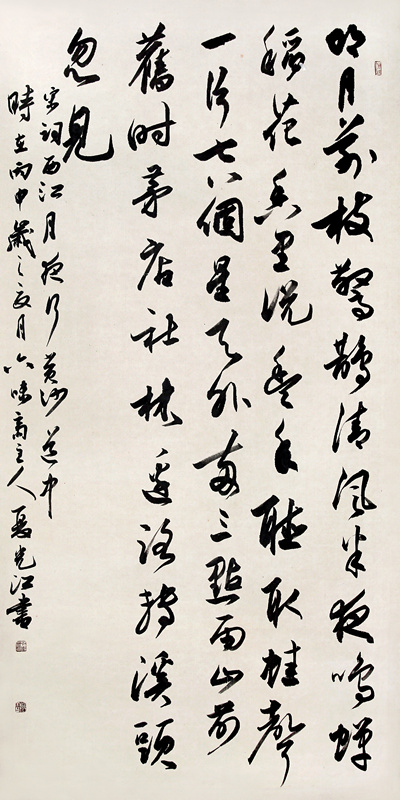 明月別枝驚鵲清風半夜鳴蟬
稻花香里説豐年聽取蛙聲
一片七八個星天外兩三點雨山前
舊时茅店社林邊路轉溪頭
忽見
宋詞西江月夜行黄沙道中
時在丙申歲之夏月六味齋主人光江書